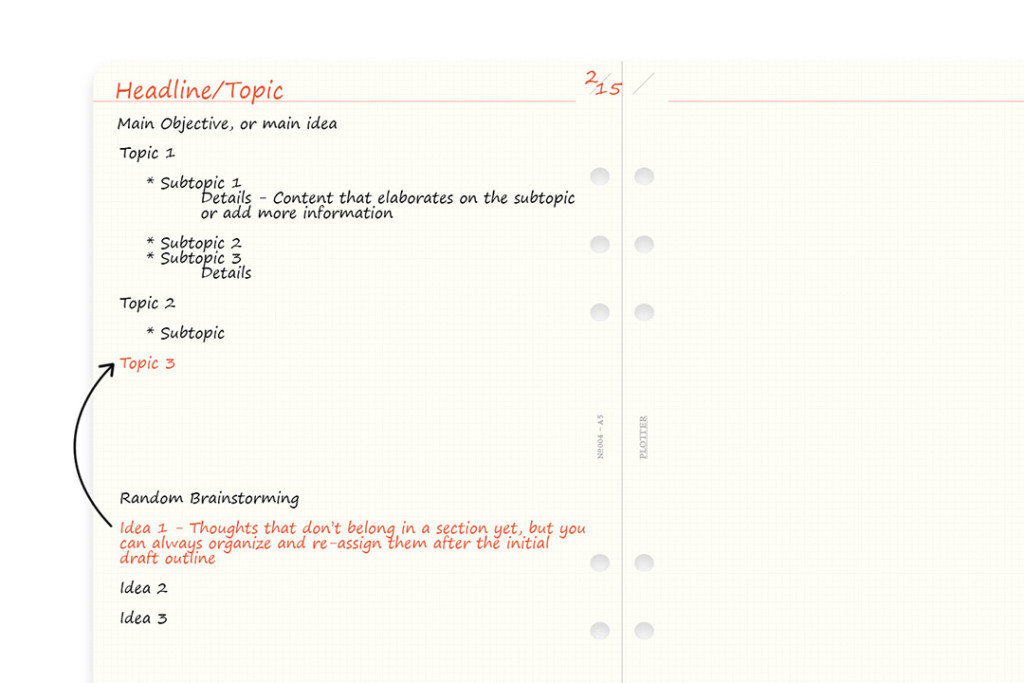 Headline/Topic
2/15
Main Objective, or main idea
Topic 1
* Subtopic 1
Details - Content that elaborates on the subtopic
or add more information
* Subtopic 2
* Subtopic 3
Details
Topic 2
* Subtopic
Topic 3
Nº004 - A5
PLOTTER
Random Brainstorming
Idea 1 - Thoughts that don't belong in a section yet, but you
can always organize and re-assign them after the initial
draft outline
Idea 2
Idea 3